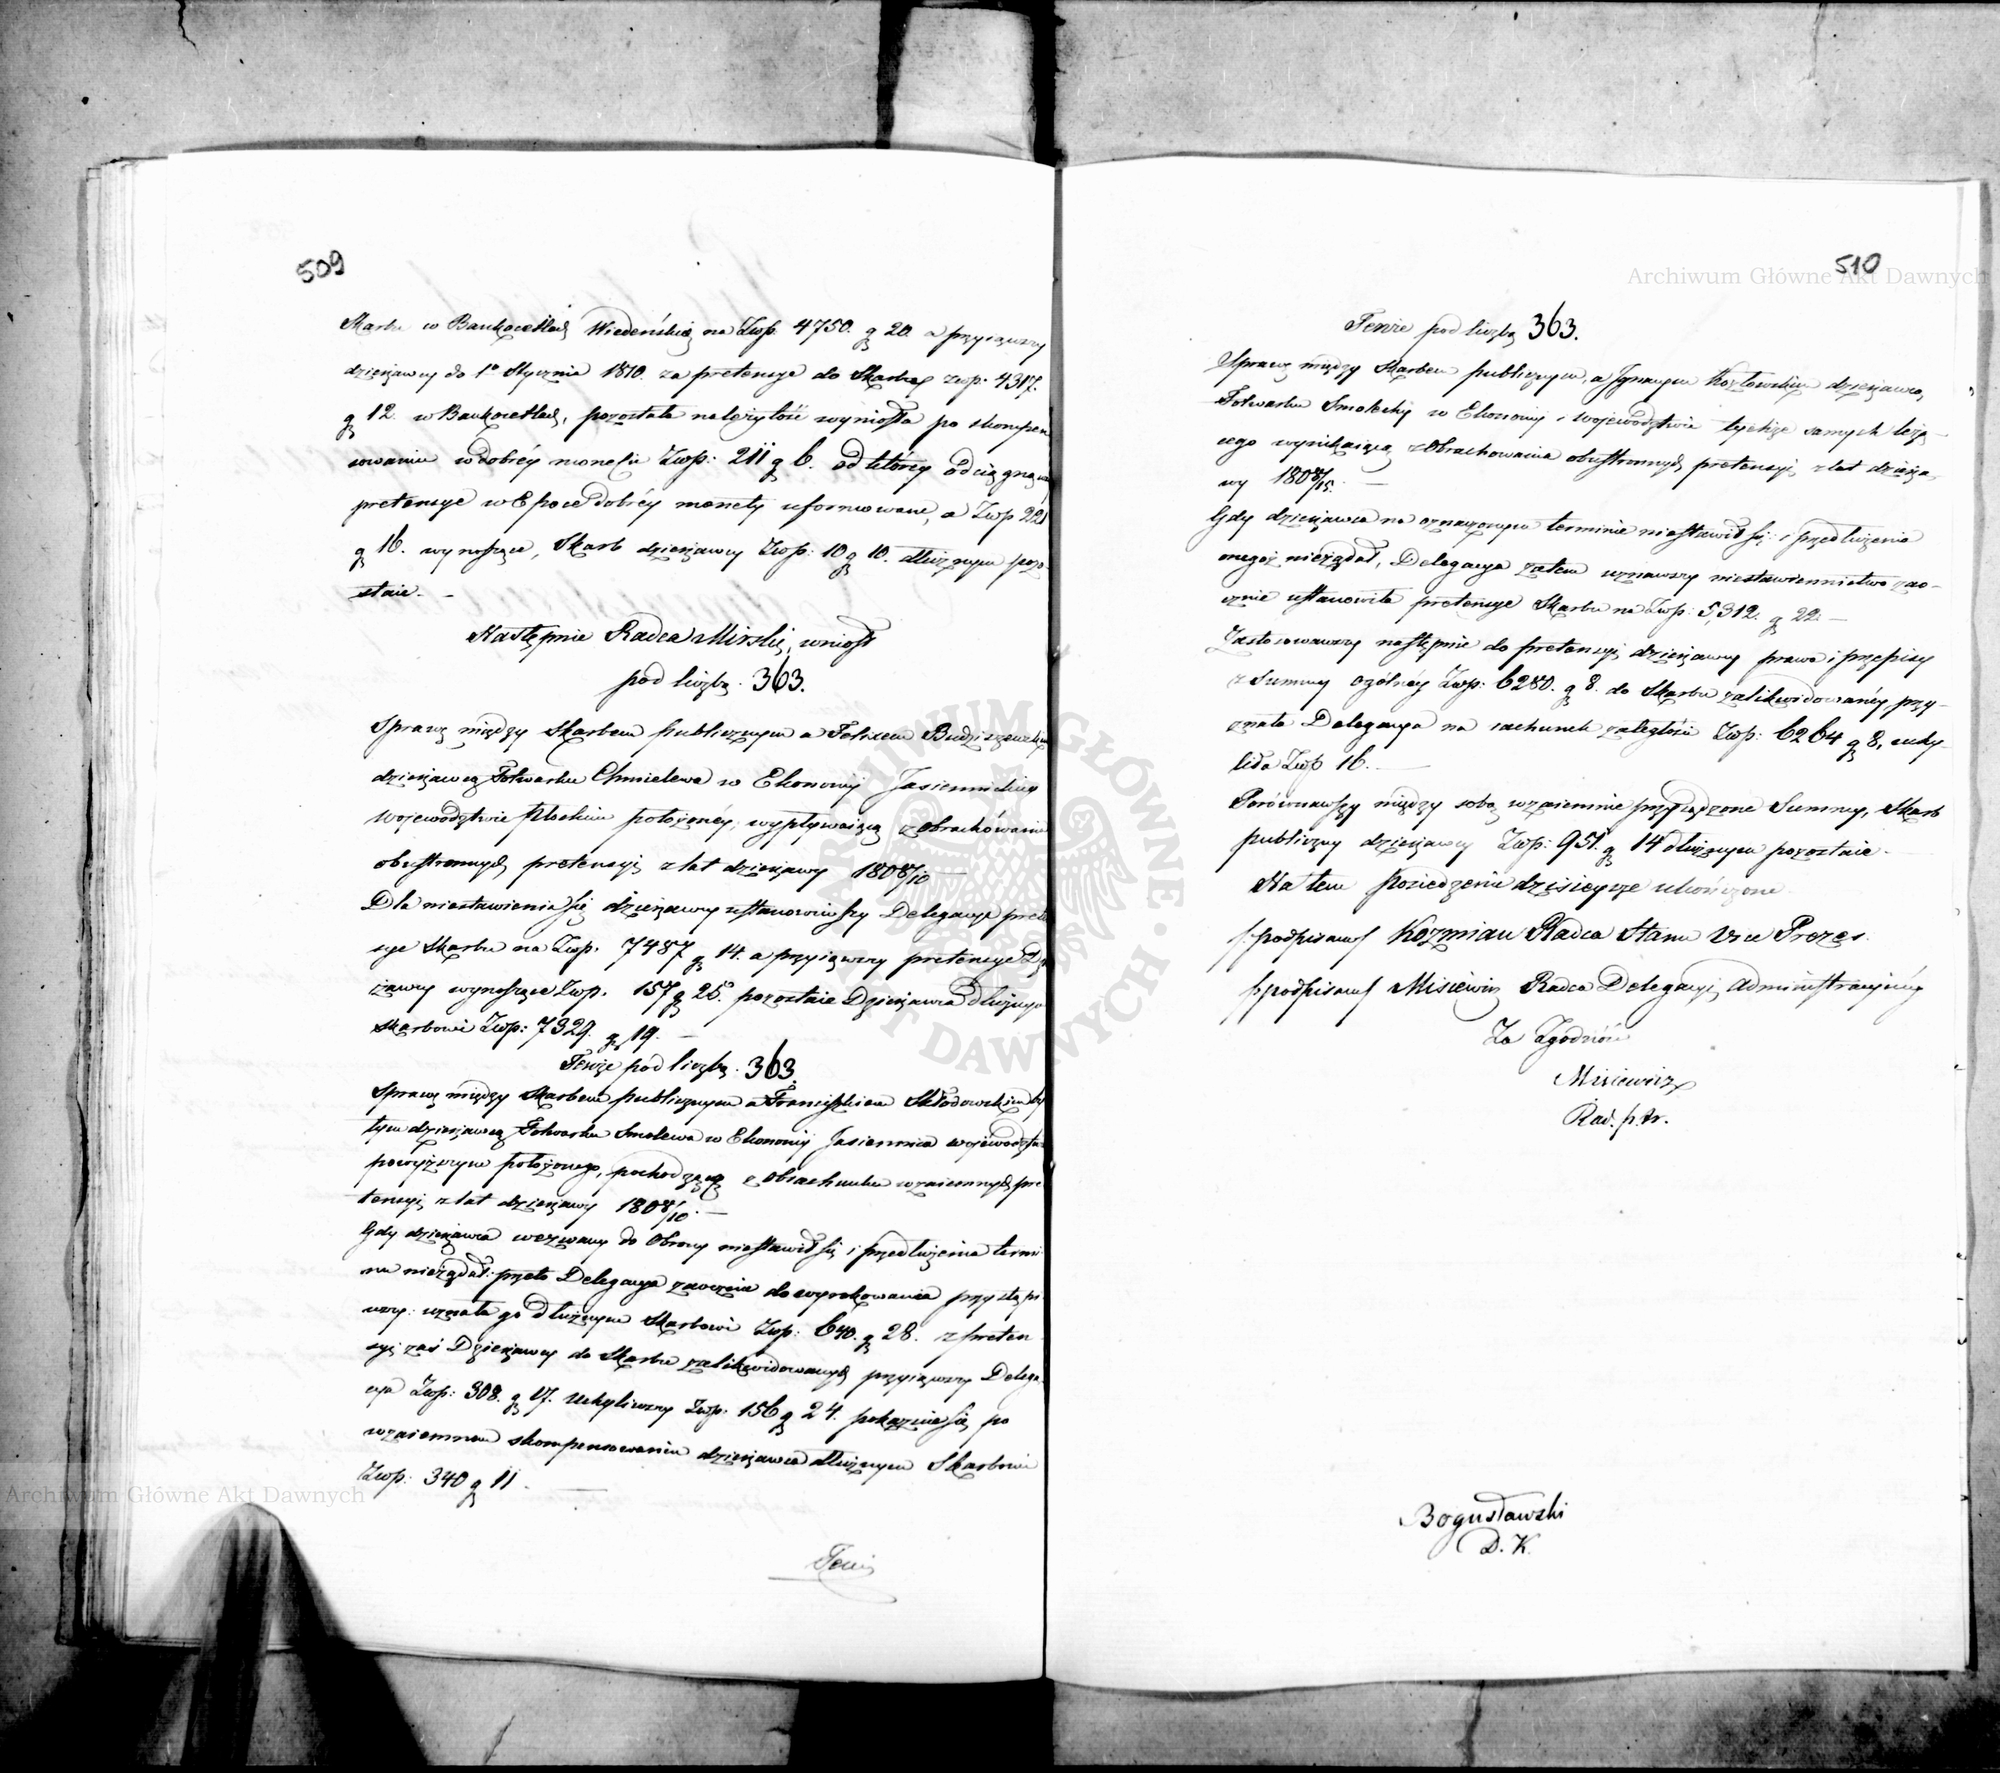 509
Skarbu w Bankocetlach Wiedeńskich na Zwp. 4750. g 20. a przyiąwszy
dzierżawcy do 1o Stycznia 1810. za pretensye do Skarbu zwp: 4317.
g 12. w Bankocetlach, pozostała należytość wyniosła po skompen
sowaniu w dobréy monecie Zwp: 211 g 6. od któréy odciągnąwszy
pretensye w Epoce dobréy monety uformowane, a Zwp 221
g 16. wynoszące, Skarb dzierżawcy Zwp: 10 g 10. dłużnym pozo-
staie. —
Następnie Radca Mirski, wniosł
pod liczbą. 363.
Sprawę między Skarbem publicznym a Felixem Budziszewskim
dzierżawcą Folwarku Chmielewa w Ekonomij Jasiennickiey
Województwie Płockim położonéy, wypływaiącą z obrachowania
obustronnych pretensyi z lat dzierżawy 1808/10 —
Dla niestawienia się dzierżawcy ustanowiwszy Delegacya preten
sye Skarbu na Zwp. 7487 g 14. a przyiąwszy pretensye Dzie
rżawcy wynoszące Zwp. 157 g 25. pozostaie Dzierżawca dłużnym
Skarbowi Zwp: 7329. g 19. —
Tenże pod liczbą. 363.
Sprawę między Skarbem publicznym a Franciszkiem Skłodowskim by
łym dzierżawcą Folwarku Smolewa w Ekonomij Jasiennica województwie
powyższym położonego, pochodzącą z obrachunku wzaiemnych pre
tensyi z lat dzierżawy 1808/10. —
Gdy dzierżawca wezwany do Obrony niestawił się i przedłużenia termi
nu nieżądał: przeto Delegacya zaocznie do wyrokowania przystąpi
wszy: uznała go dłużnym Skarbowi Zwp: 640. g 28. z preten
syi zaś Dzierżawcy do Skarbu zalikwidowanych przyiąwszy Delega
cya Zwp: 308. g 17. uchyliwszy Zwp: 156 g 24. pokazuie się po
wzaiemnem skompensowaniu dzierżawca dłużnym Skarbowi
Zwp: 340 g 11. —
Tenże
510
Tenże pod liczbą 363.
Sprawę między Skarbem publicznym, a Ignacym Kozłowskim dzierżawcą
Folwarku Smolechy w Ekonomij i województwie tychże samych leżą-
cego wynikaiącą z Obrachowania obustronnych pretensyi z lat dzierża
wy 1808/15. —
Gdy dzierżawca na oznaczonym terminie niestawił się i przedłużenia
onegoż nieżądał, Delegacya zatem uznawszy niestawiennictwo zao-
cznie ustanowiła pretensye Skarbu na Zwp: 5,312. g 22. —
Zastosowawszy następnie do pretensyi dzierżawcy prawa i przepisy
z Summy ogólnéy Zwp: 6280. g 8. do Skarbu zalikwidowanéy przy-
znała Delegacya na rachunek zaległości Zwp: 6264 g 8, uchy-
liła Zwp 16. —
Porównawszy między sobą wzaiemnie przysądzone Summy, Skarb
publiczny dzierżawcy Zwp: 951. g 14 dłużnym pozostaie.
Na tem posiedzenie dzisieysze ukończone
/podpisano/ Kozmian Radca Stanu Vice Prezes.
/podpisano/ Misiewicz Radca Delegacyi Administracyinéy
Za Zgodność
Misiewicz
Rad. p. Tr.
Bogusławski
D. K.
Archiwum Główne Akt Dawnych
Archiwum Główne Akt Dawnych
ARCHIWUM GŁÓWNE AKT DAWNYCH